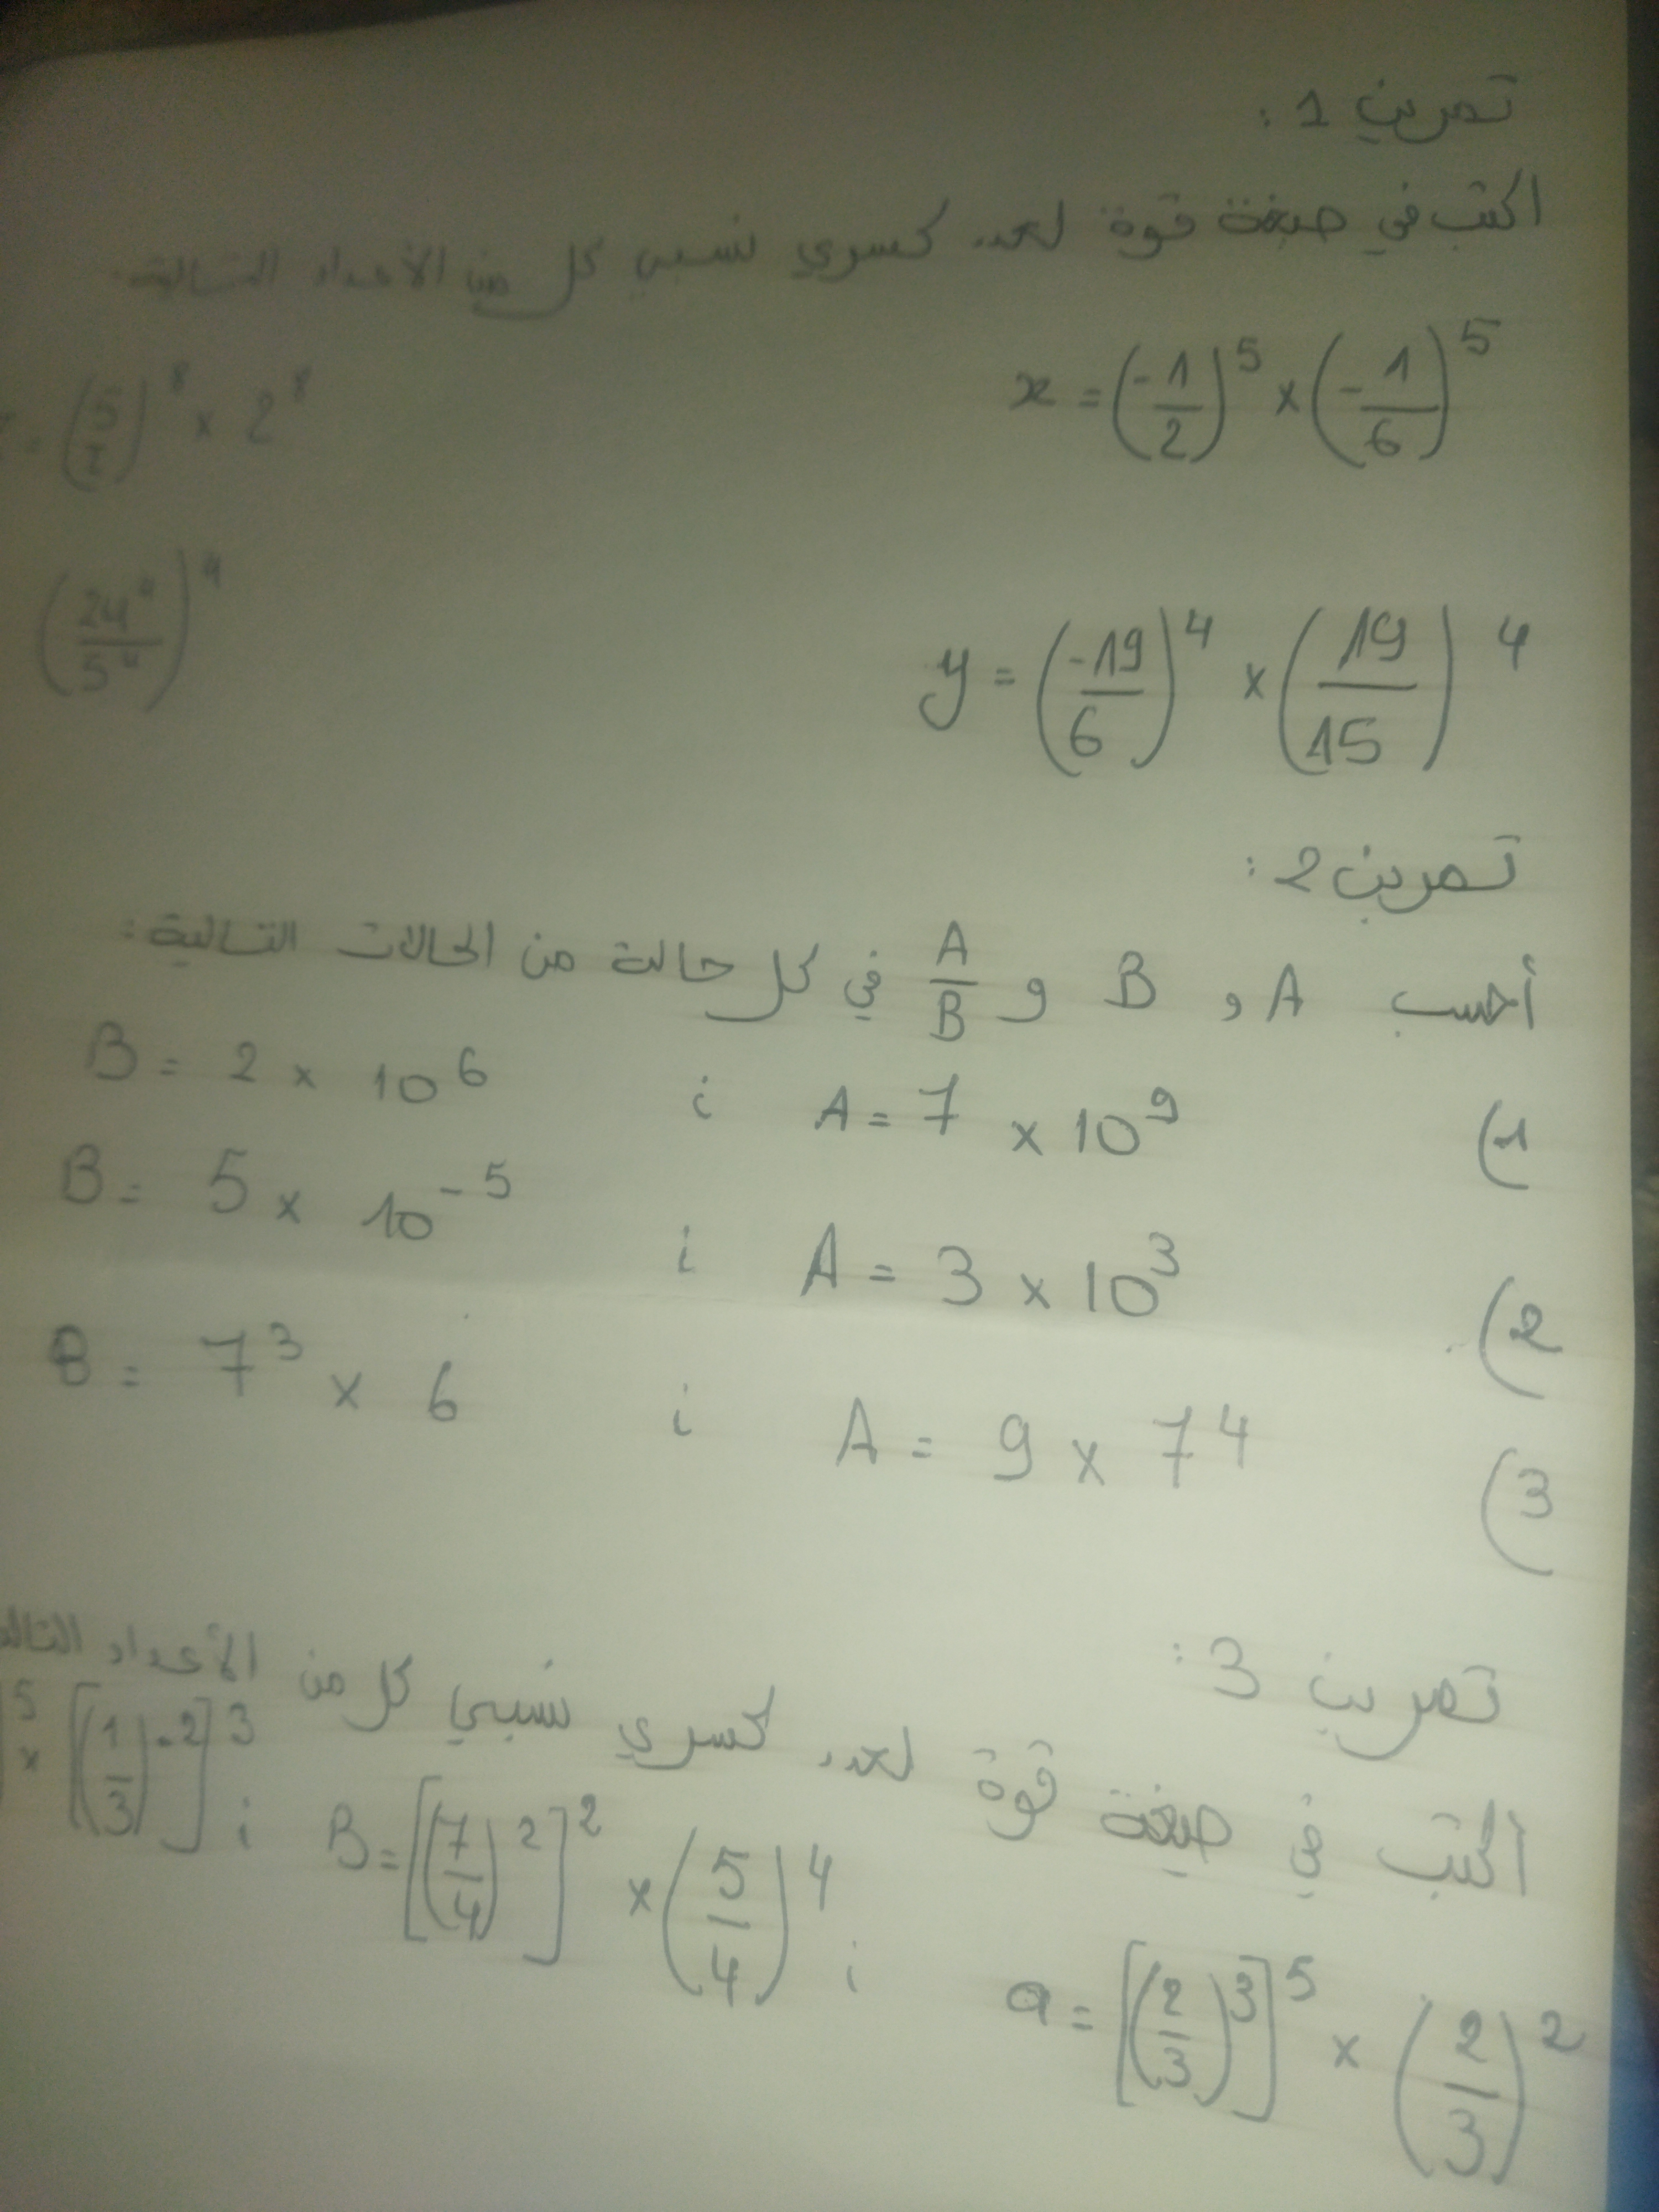 تمرين 1 :
اكتب في صيغة قوة لعدد كسري نسبي كل من الأعداد التالية.
x = (-1/2)^5 × (-1/6)^5
= (5/)^8 × 2^8
y = (-19/6)^4 × (19/15)^4
(24^4/5^4)^4
تمرين 2 :
أحسب A و B و A/B في كل حالة من الحالات التالية :
(1 A = 7 × 10^9 ; B = 2 × 10^6
(2 A = 3 × 10^3 ; B = 5 × 10^-5
(3 A = 9 × 7^4 ; B = 7^3 × 6
تمرين 3 :
أكتب في صيغة قوة لعدد كسري نسبي كل من الأعداد
a = [(2/3)^3]^5 × (2/3)^2 ; B = [(7/4)^2]^2 × (5/4)^4 ; )^5 × [(1/3)^-2]^3